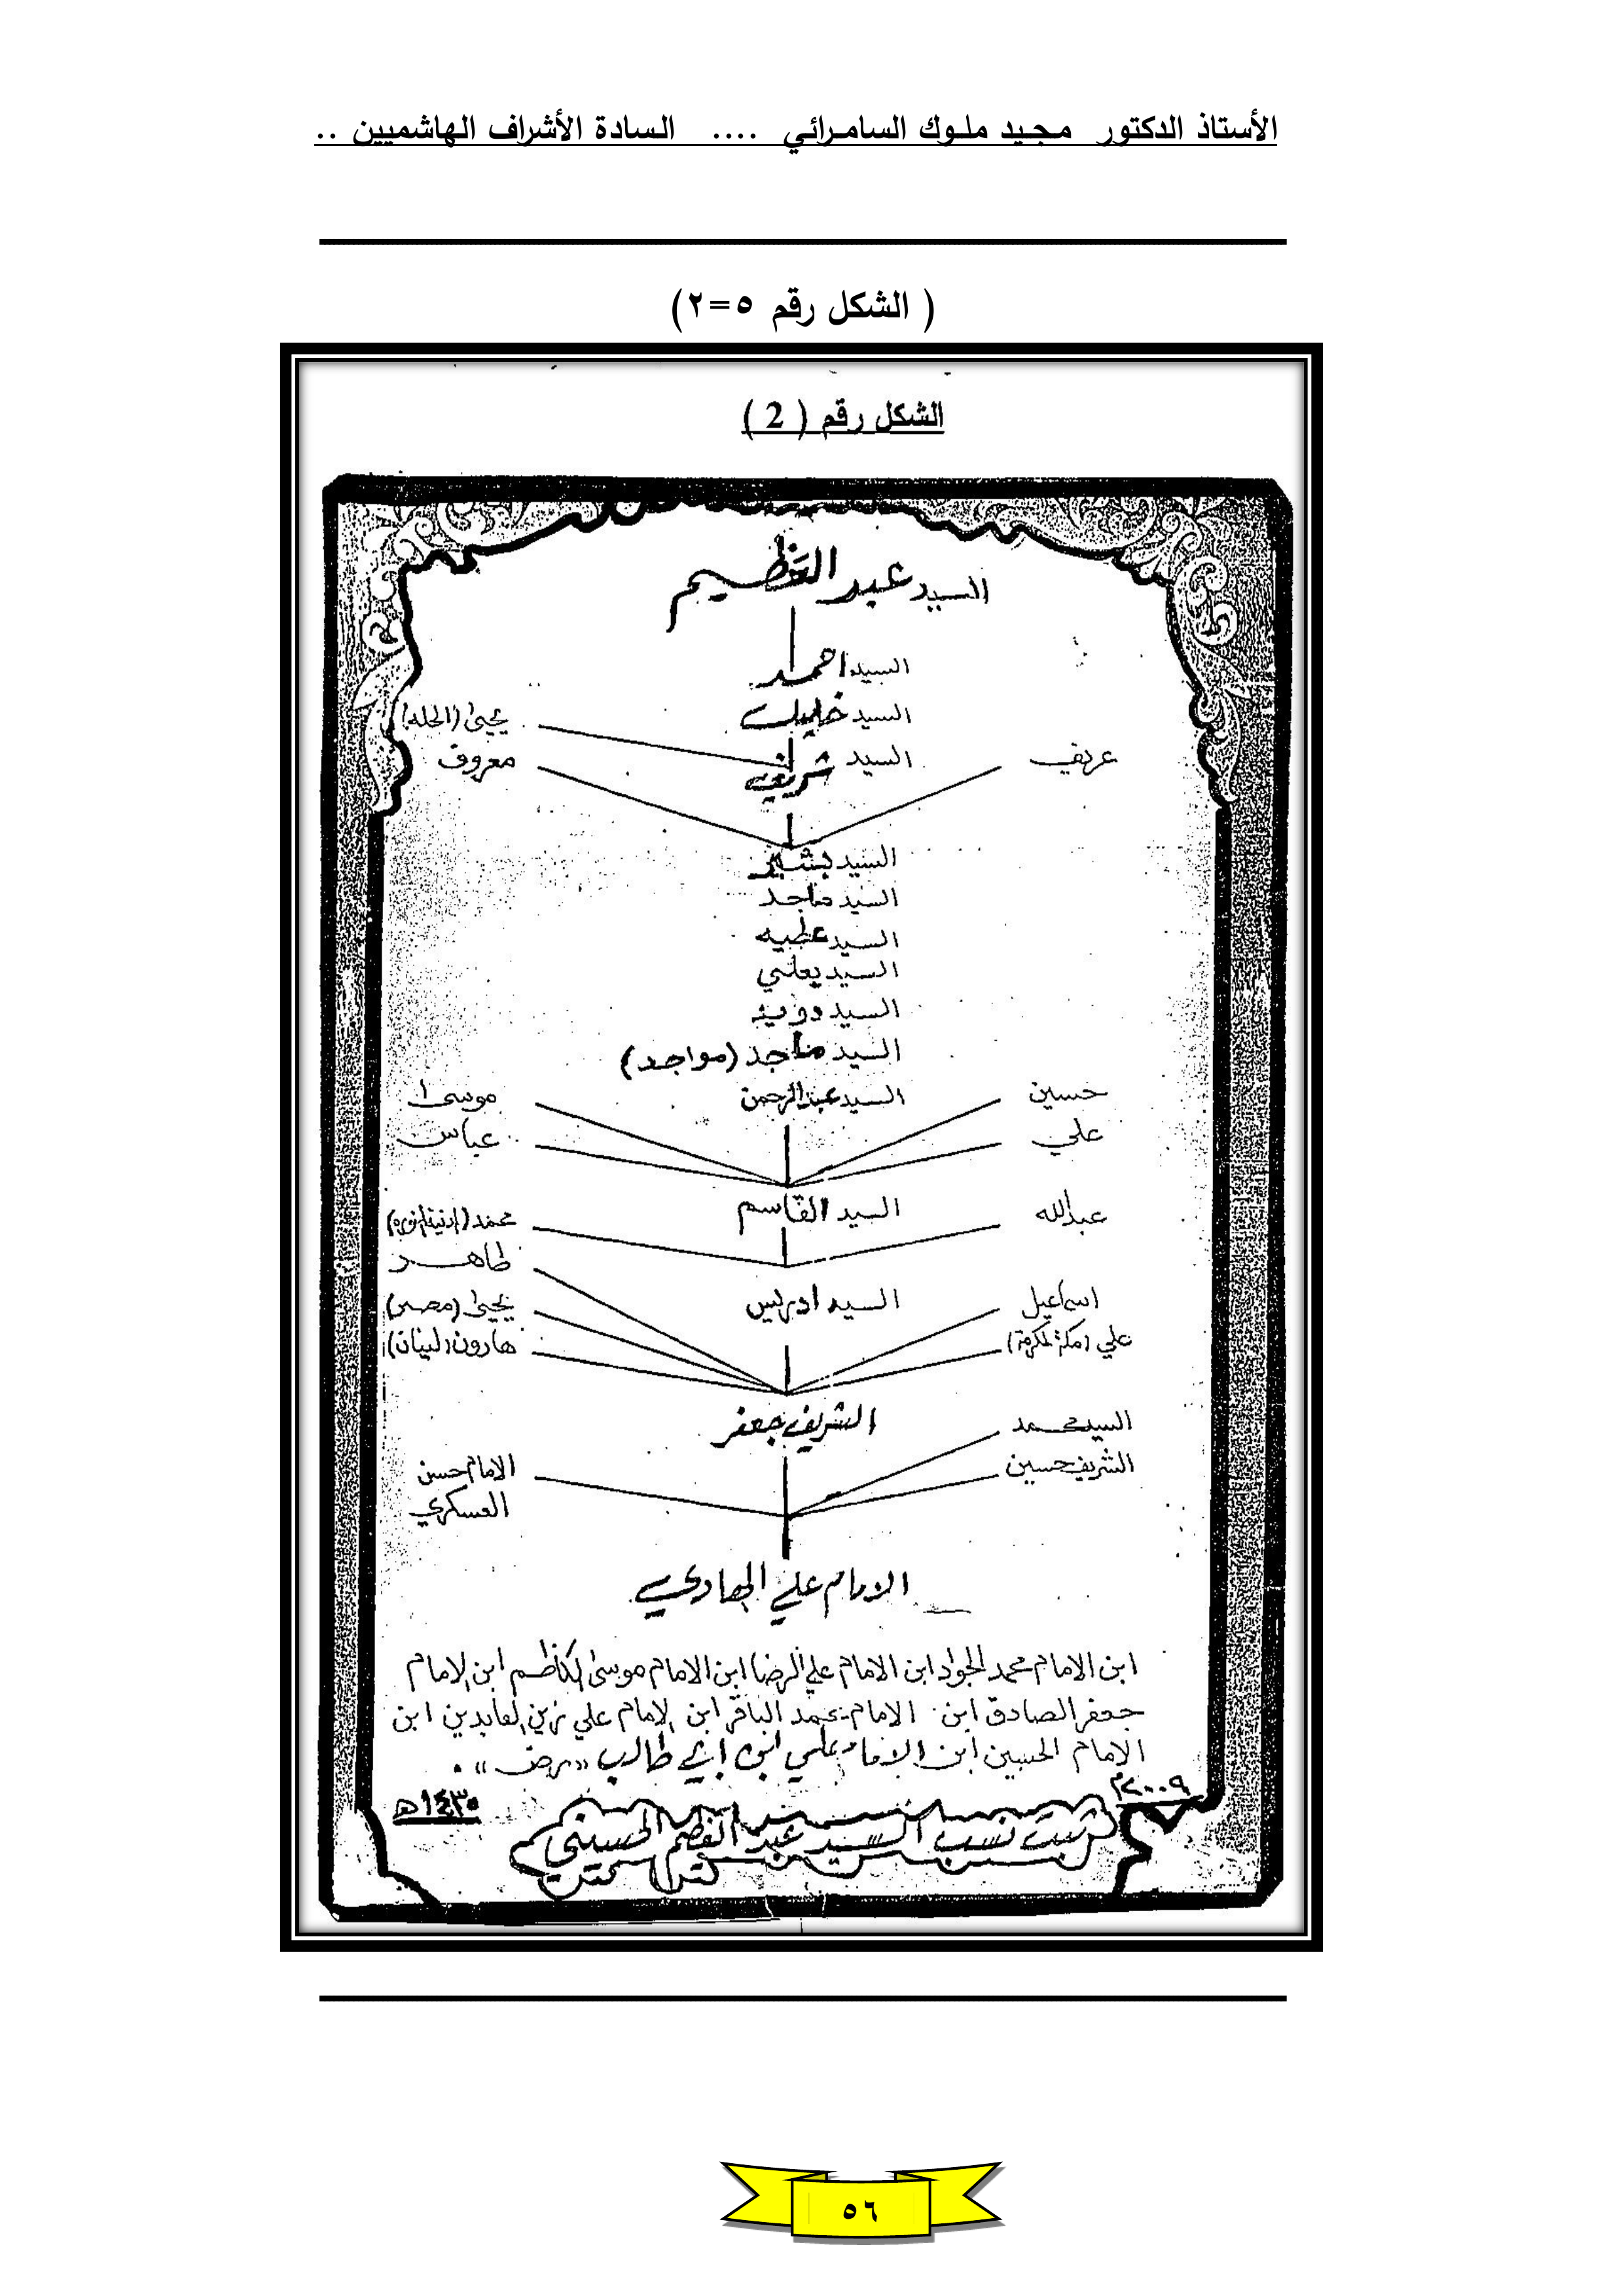 الأستاذ الدكتور مجيد ملوك السامرائي .... السادة الأشراف الهاشميين ..
( الشكل رقم ٥=٢)
الشكل رقم ( 2 )
السيد عبد العظيم
السيد احمد
السيد خليل
يحيى (الحله)
عريف
السيد شريف
معروف
السيد بشير
السيد ماجد
السيد عطيه
السيد يعلي
السيد
السيد ماجد (مواجد)
حسين
السيد عبدالرحمن
موسى
علي
عباس
عبدالله
السيد القاسم
محمد
طاهر
اسماعيل
السيد ادريس
يحيى (مصر)
علي (مكة المكرمة)
هارون (لبنان)
السيد محمد
الشريف جعفر
الشريف حسين
الامام حسن
العسكري
الامام علي الهادي
ابن الامام محمد الجواد ابن الامام علي الرضا ابن الامام موسى الكاظم ابن الامام
جعفر الصادق ابن الامام محمد الباقر ابن الامام علي زين العابدين ابن
الامام الحسين ابن الامام علي ابن ابي طالب «رض» .
٢٠٠٩م
١٤٣٠ه
نسب السيد عبد العظيم الحسيني
٥٦